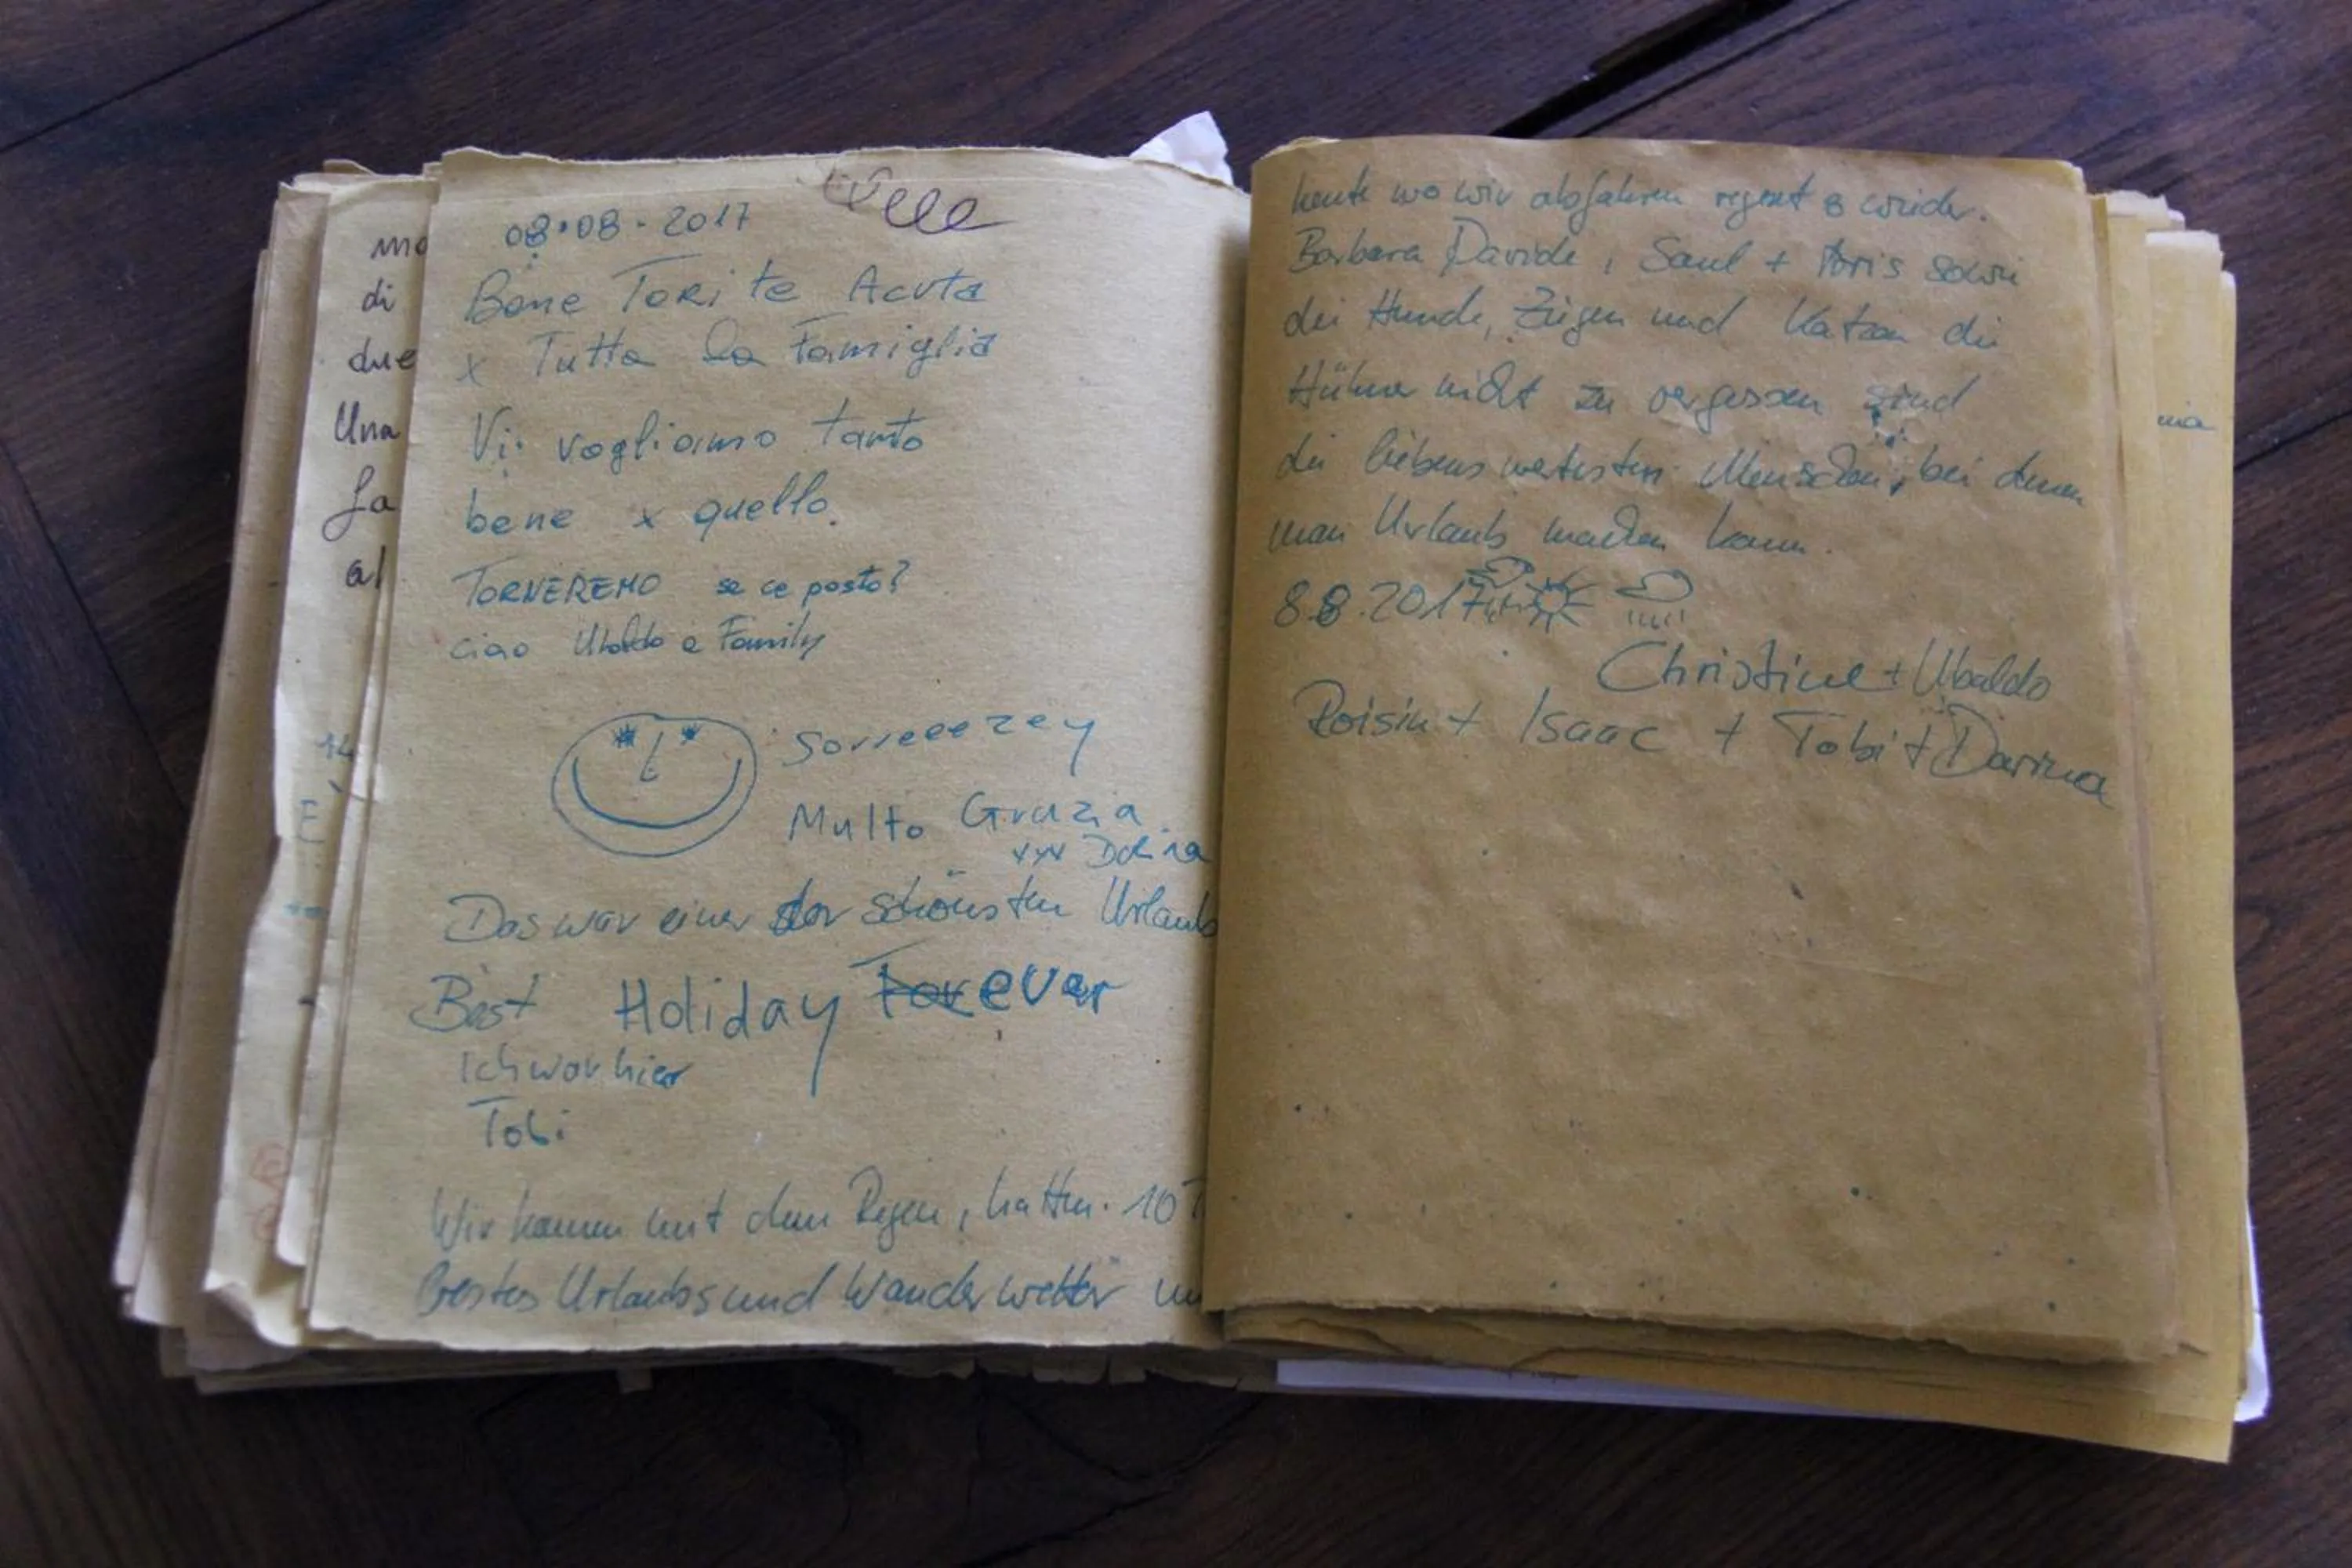 08.08.2017
Bone Tori te Acuta
x Tutta la Famiglia
Vi vogliamo tanto
bene x quello.
TORNEREMO se ce posto?
ciao Ubaldo e Family
Sorreeezey
Multo Grazia
Das war einer der schönsten Urlaub
Best Holiday Forever
Ich war hier
Tobi
Wir kamen mit dem Regen, hatten 10 T
bestes Urlaubs und Wanderwetter un
heute wo wir abfahren regent s wieder.
Barbara Davide, Saul + Aris sowie
die Hunde, Ziegen und Katzen die
Hühner nicht zu vergessen sind
die liebenswertesten Menschen, bei denen
man Urlaub machen kann.
8.8.2017
Christine + Ubaldo
Roisin + Isaac + Tobi + Darina
mo
di
due
Una
fa
al
14
E